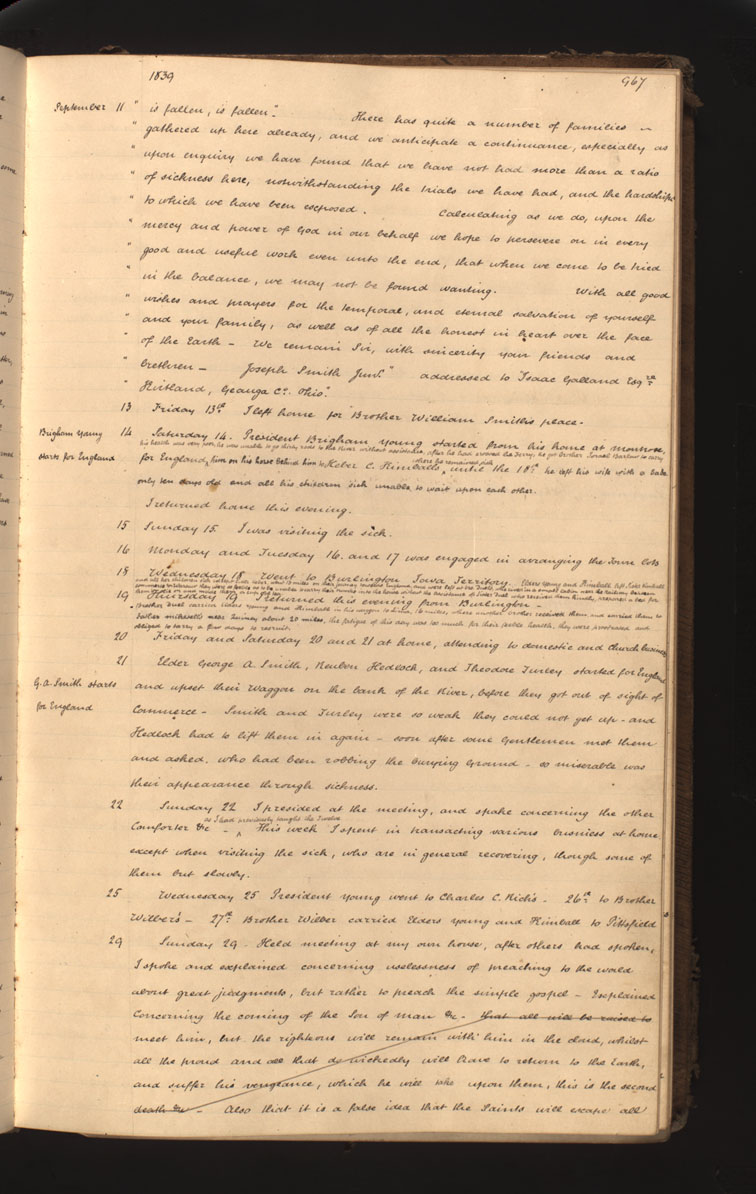 1839 967
September 11 " is fallen, is fallen". There has quite a number of families
" gathered up here already, and we anticipate a continuance, especially as
" upon enquiry we have found that we have not had more than a ratio
" of sickness here, notwithstanding the trials we have had, and the hardships
" to which we have been exposed. Calculating as we do, upon the
" mercy and power of God in our behalf we hope to persevere on in every
" good and useful work even unto the end, that when we come to be tried
" in the balance, we may not be found wanting. With all good
" wishes and prayers for the temporal, and eternal salvation of yourself
" and your family, as well as of all the honest in heart over the face
" of the Earth – We remain Sir, with sincerity your friends and
" brethren – Joseph Smith Junr." addressed to Isaac Galland Esqre
" Kirtland, Geauga Co. Ohio".
13 Friday 13th I left home for Brother William Smith's place.
Brigham Young 14 Saturday 14. President Brigham Young started from his home at Montrose,
his health was very poor, he was unable to go thirty rods to the river without assistance, after he had crossed the ferry, he got Brother Israel Barlow to carry
starts for England for England, him on his horse behind him to Heber C. Kimball's, where he remained sick until the 18th he left his wife with a babe
only ten days old and all his children sick unable to wait upon each other.
I returned home this evening.
15 Sunday 15. I was visiting the sick.
16 Monday and Tuesday 16. and 17 was engaged in arranging the Town lots
18 Wednesday 18 Went to Burlington Iowa Territory. Elders Young and Kimball left Sister Kimball
and all her children sick
19 Thursday 19 Returned this evening from Burlington –
Brother Duel carried Elders Young and Kimball in his waggon to Lima, 16 miles, where another brother received them and carried them to
Father Mikesell's near Quincy about 20 miles, the fatigue of this day was too much for their feeble health, they were prostrated and
obliged to tarry a few days to recruit.
20 Friday and Saturday 20 and 21 at home, attending to domestic and Church business
21 Elder George A Smith, Reuben Hedlock, and Theodore Turley started for England
G. A. Smith starts and upset their Waggon on the bank of the River, before they got out of sight of
for England Commerce – Smith and Turley were so weak they could not get up – and
Hedlock had to lift them in again – soon after some Gentlemen met them
and asked, who had been robbing the burying Ground – so miserable was
their appearance through sickness.
22 Sunday 22 I presided at the meeting, and spake concerning the other
as I had previously taught the Twelve
Comforter &c – ^ This week I spent in transacting various business at home
except when visiting the sick, who are in general recovering, though some of
them but slowly.
25 Wednesday 25 President Young went to Charles C. Rich's. 26th to Brother
Wilber's – 27th Brother Wilber carried Elders Young and Kimball to Pittsfield
29 Sunday 29. Held meeting at my own house, after others had spoken,
I spoke and explained concerning uselessness of preaching to the world
about great judgments, but rather to preach the simple gospel – Explained
Concerning the coming of the Son of man &c – that all will be raised to
meet him, but the righteous will remain with him in the cloud, whilst
all the proud and all that do wickedly will have to return to the Earth,
and suffer his vengeance, which he will take upon them, this is the second
death &c – Also that it is a false idea that the Saints will escape all